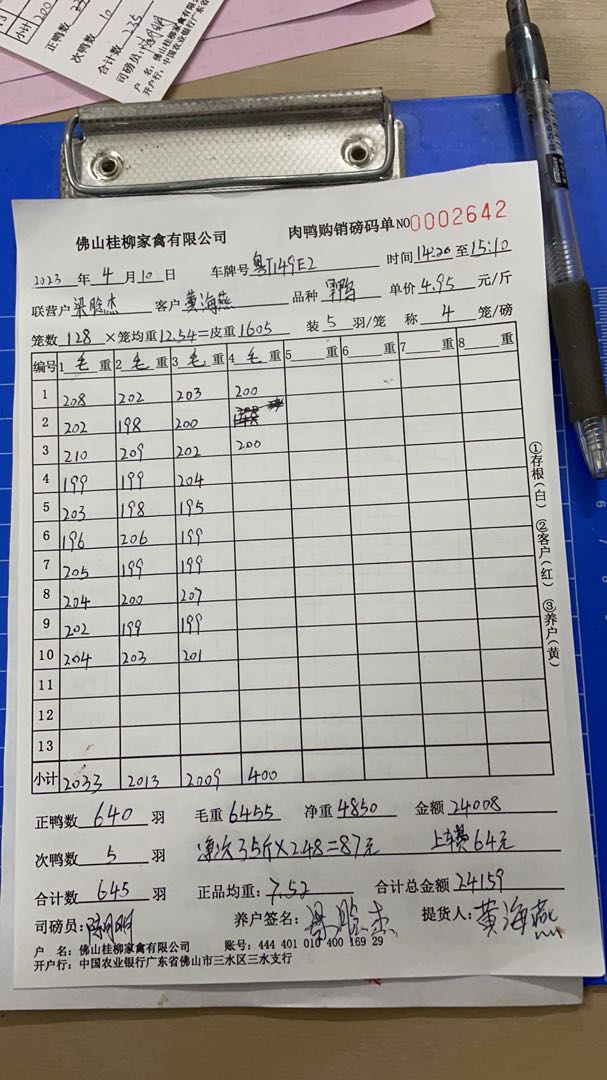 小计 200
正鸭数
次鸭数 10
合计数 235
司磅员:
户 名: 佛山桂柳家禽有限公司
开户行: 中国农业银行广东省佛
佛山桂柳家禽有限公司 肉鸭购销磅码单 NO 0002642
2023 年 4 月 10 日 车牌号 粤T149E2 时间 14:26 至 15:10
联营户 梁晗杰 客户 黄海燕 品种 单价 4.95 元/斤
笼数 128 ×笼均重 12.54 =皮重 1605 装 5 羽/笼 称 4 笼/磅
编号 1 毛 重 2 毛 重 3 毛 重 4 毛 重 5 重 6 重 7 重 8 重
1 208 202 203 200
2 202 198 200
3 210 209 202 200
4 199 199 204
5 203 198 195
6 196 206 199
7 205 199 199
8 204 200 207
9 202 199 199
10 204 203 201
11
12
13
小计 2033 2013 2009 400
①存根(白) ②客户(红) ③养户(黄)
正鸭数 640 羽 毛重 6455 净重 4850 金额 24008
次鸭数 5 羽 次35斤×2.48=87元 上车费64元
合计数 645 羽 正品均重: 7.52 合计总金额 24159
司磅员: 养户签名: 梁晗杰 提货人: 黄海燕
户 名: 佛山桂柳家禽有限公司 账号: 444 401 010 400 169 29
开户行: 中国农业银行广东省佛山市三水区三水支行